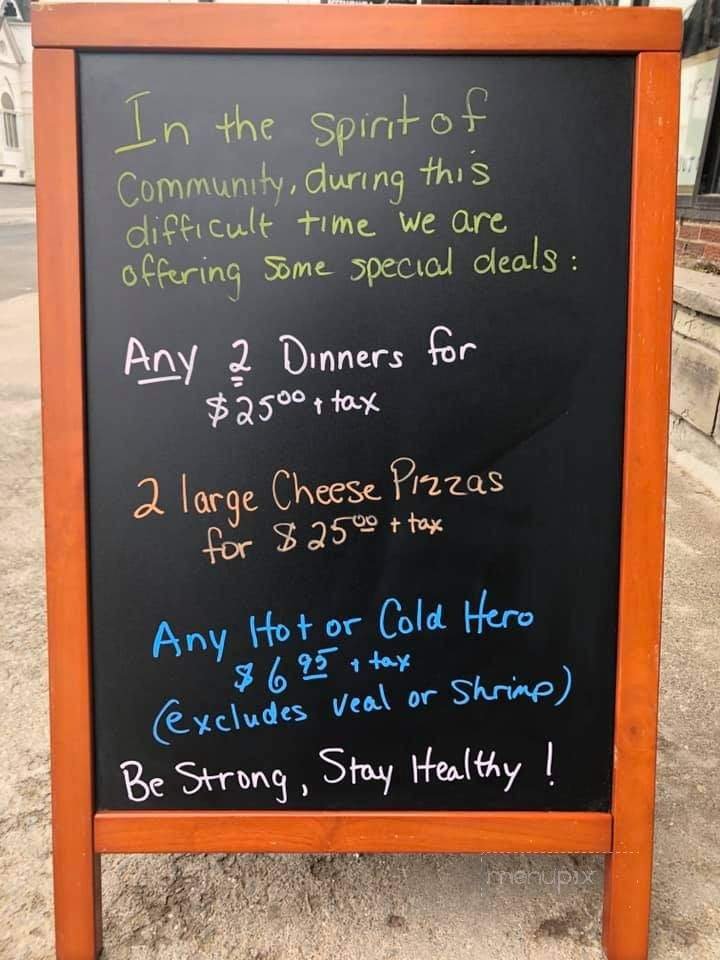 In the spirit of
Community, during this
difficult time we are
offering some special deals:
Any 2 Dinners for
$25⁰⁰ + tax
2 large Cheese Pizzas
for $25⁰⁰ + tax
Any Hot or Cold Hero
$6⁹⁵ + tax
(excludes veal or Shrimp)
Be Strong, Stay Healthy!
menupix